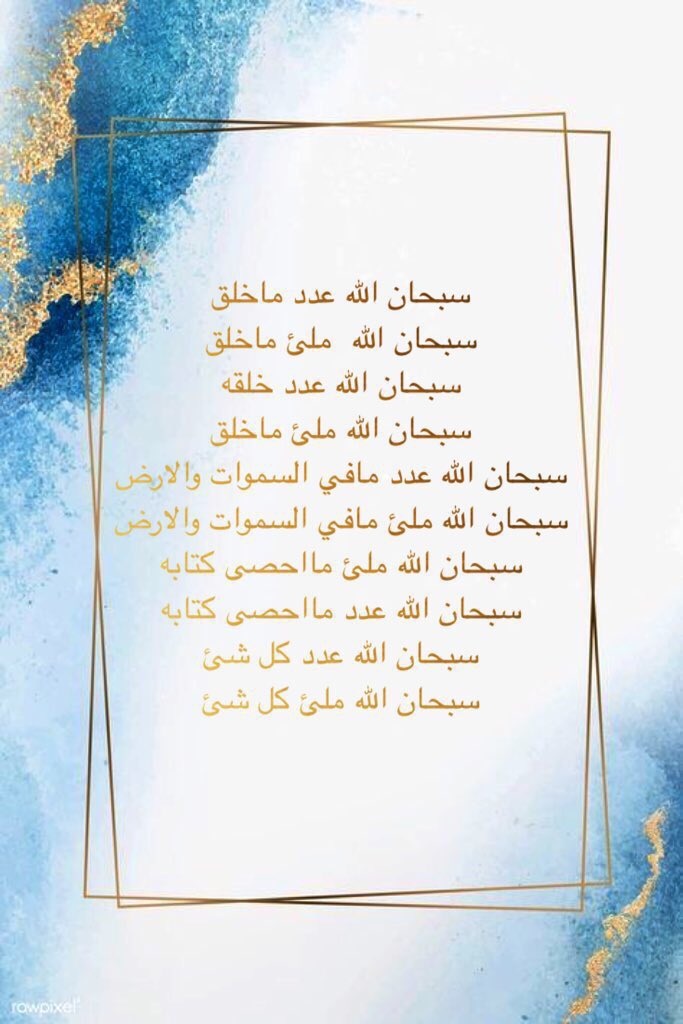 سبحان الله عدد ماخلق
سبحان الله ملئ ماخلق
سبحان الله عدد خلقه
سبحان الله ملئ ماخلق
سبحان الله عدد مافي السموات والارض
سبحان الله ملئ مافي السموات والارض
سبحان الله ملئ مااحصى كتابه
سبحان الله عدد مااحصى كتابه
سبحان الله عدد كل شئ
سبحان الله ملئ كل شئ
rawpixel